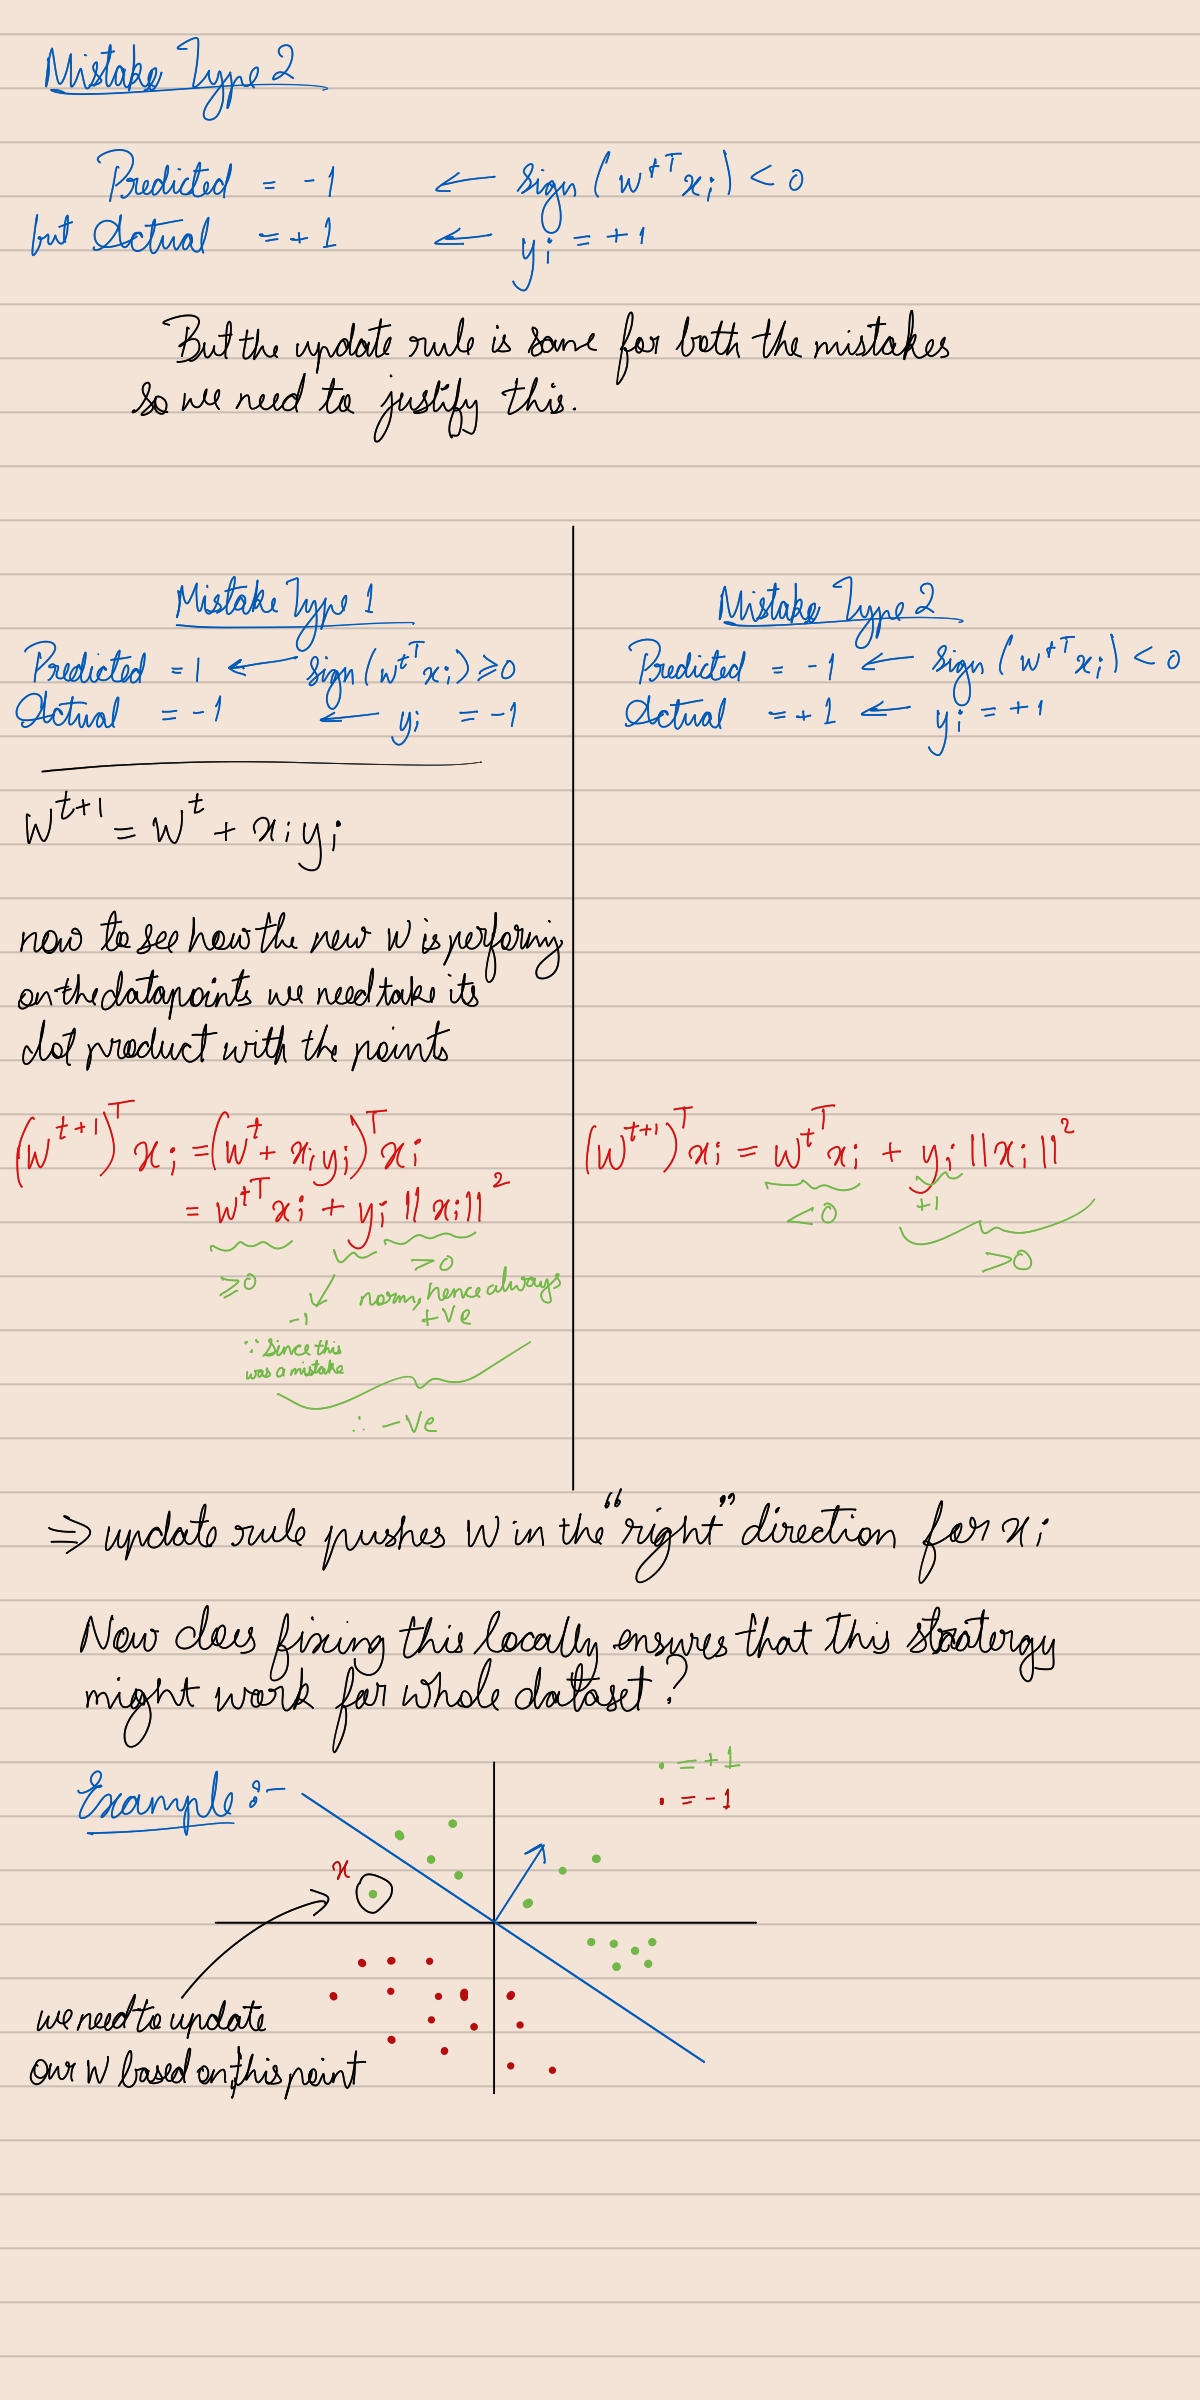 Mistake Type 2
Predicted = -1 ← sign (w^tT x_i) < 0
but Actual = +1 ← y_i = +1
But the update rule is same for both the mistakes
so we need to justify this.
Mistake Type 1
Predicted = 1 ← sign (w^tT x_i) ≥ 0
Actual = -1 ← y_i = -1
w^t+1 = w^t + x_i y_i
now to see how the new w is perforing
on the datapoints we need take its
dot product with the points
(w^t+1)^T x_i = (w^t + x_i y_i)^T x_i
= w^tT x_i + y_i ||x_i||^2
≥0
>0
norm, hence always
+Ve
-1
∵ Since this
was a mistake
∴ -Ve
Mistake Type 2
Predicted = -1 ← sign (w^tT x_i) < 0
Actual = +1 ← y_i = +1
(w^t+1)^T x_i = w^tT x_i + y_i ||x_i||^2
<0
+1
>0
⇒ update rule pushes W in the "right" direction for x_i
Now does fixing this locally ensures that this staatergy
might work for whole dataset?
• = +1
• = -1
Example :-
x
we need to update
our W based on this point